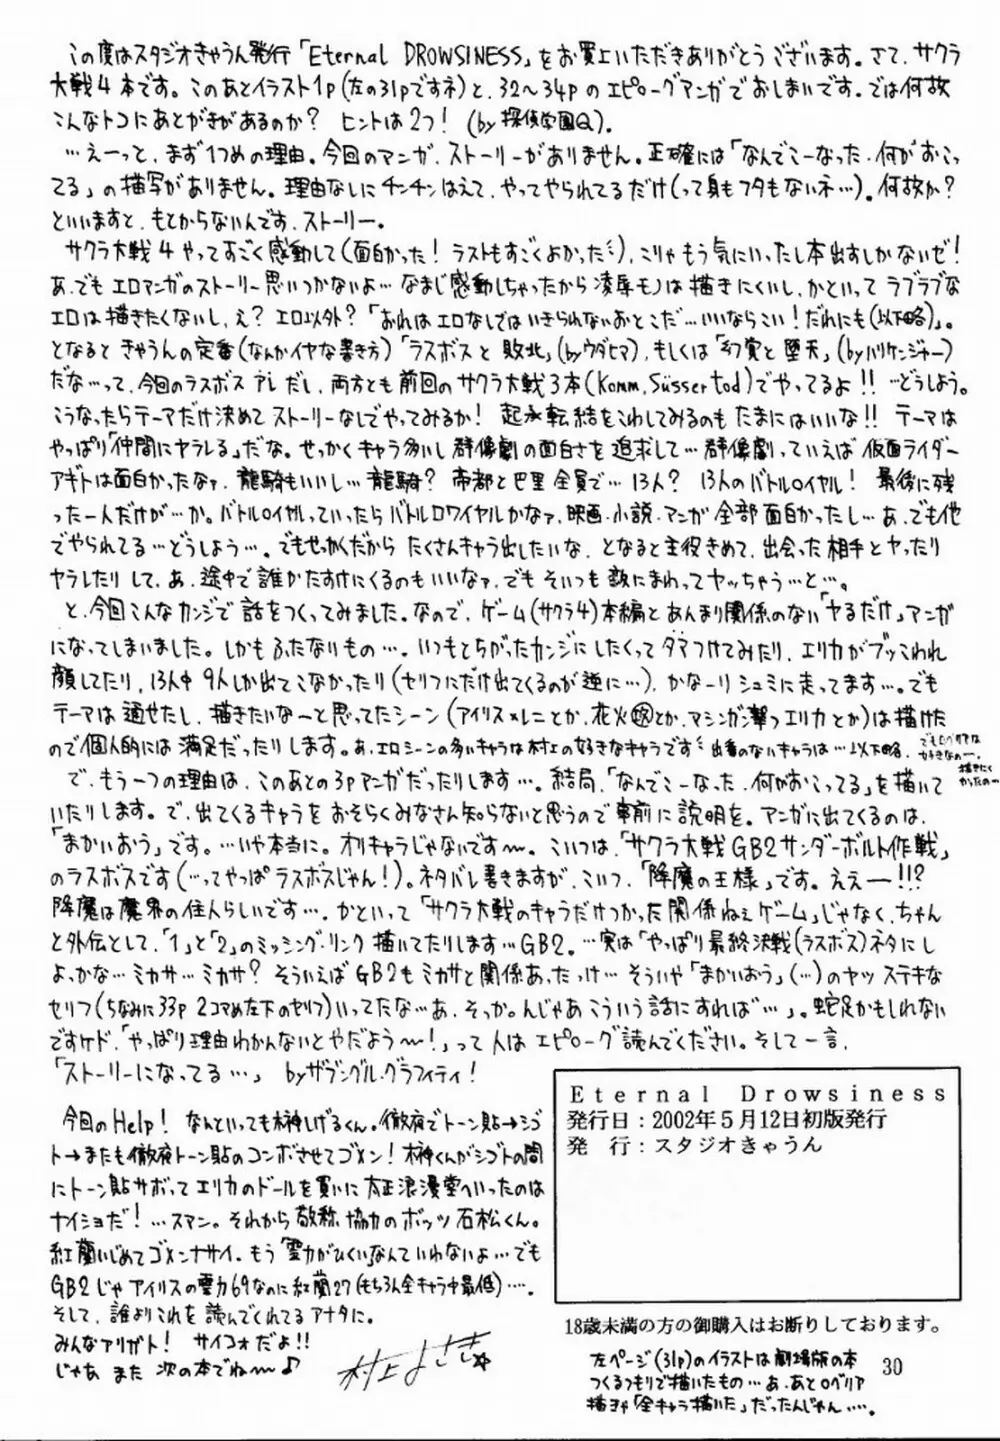 この度はスタジオきゃうん発行「Eternal DROWSINESS」をお買上いただきありがとうございます。さて、サクラ
大戦4本です。このあとイラスト1p(左の31pですネ)と、32〜34pのエピローグマンガでおしまいです。では何故
こんなトコにあとがきがあるのか? ヒントは2つ! (by 探偵学園Q)。
…えーっと、まず1つめの理由。今回のマンガ、ストーリーがありません。正確には「なんでこーなった、何がおこっ
てる」の描写がありません。理由なしにチンチンはえて、やってやられてるだけ(って身もフタもないネ…)。何故か?
といいますと、もとからないんです、ストーリー。
サクラ大戦4やってすごく感動して(面白かった! ラストもすごくよかった)、こりゃもう気にいったし本出すしかないぜ!
あ、でもエロマンガのストーリー思いつかないよ…なまじ感動しちゃったから凌辱モノは描きにくいし、かといってラブラブな
エロは描きたくないし、え? エロ以外?「おれはエロなしではいきられないおとこだ…いいならこい!だれにも(以下略)」。
となるときゃうんの定番(なんかイヤな書き方)「ラスボスと敗北」(byウダヒマ)、もしくは「幻覚と堕天」(byハリケンジャー)
だな…って、今回のラスボスアレだし、両方とも前回のサクラ大戦3本(Komm, Süsser tod)でやってるよ!! …どうしよう。
こうなったらテーマだけ決めてストーリーなしでやってみるか! 起承転結をこわしてみるのもたまにはいいな!! テーマは
やっぱり「仲間にヤラレる」だな。せっかくキャラ多いし群像劇の面白さを追求して…群像劇っていえば仮面ライダー
アギトは面白かったなァ、龍騎もいいし…龍騎? 帝都と巴里全員で…13人? 13人のバトルロイヤル! 最後に残
った一人だけが…か。バトルロイヤルっていったらバトルロワイヤルかなァ、映画・小説・マンガ全部面白かったし…あ、でも他
でやられてる…どうしよう…。でもせっかくだからたくさんキャラ出したいな、となると主役きめて、出会った相手とヤったり
ヤラしたりして、あ、途中で誰かたすけにくるのもいいなァ、でもそいつも敵にまわってヤッちゃう…と…。
と、今回こんなカンジで話をつくってみました。なので、ゲーム(サクラ4)本編とあんまり関係のない「ヤるだけ」マンガ
になってしまいました。しかもふたないもの…。いつもとちがったカンジにしたくってダマつけてみたり、エリカがブッこわれ
顔してたり、13人中9人しか出てこなかったり(セリフにだけ出てくるのが逆に…)、かなーりシュミに走ってます…。でも
テーマは通せたし、描きたいなーと思ってたシーン(アイリス×レニとか、花火とか、マシンガン撃つエリカとか)は描けた
ので個人的には満足だったりします。あ、エロシーンの多いキャラは村上の好きなキャラです 出番のないキャラは…以下略、
でもロベリアは
好きなのー、
描きたく
かったのー
で、もう一つの理由は、このあとの3pマンガだったりします…。結局、「なんでこーなった、何がおこってる」を描いて
いたりします。で、出てくるキャラをおそらくみなさん知らないと思うので事前に説明を。マンガに出てくるのは、
「まかいおう」です。…いや本当に。オリキャラじゃないです〜。こいつは、「サクラ大戦GB2サンダーボルト作戦」
のラスボスです(…ってやっぱラスボスじゃん!)。ネタバレ書きますが、こいつ、「降魔の王様」です。ええー!!?
降魔は魔界の住人らしいです…。かといって「サクラ大戦のキャラだけつかった関係ねェゲーム」じゃなく、ちゃん
と外伝として、「1」と「2」のミッシング・リンク描いてたりします…GB2。…実は「やっぱり最終決戦(ラスボス)ネタにし
よっかな…ミカサ…ミカサ? そういえばGB2もミカサと関係あったっけ…そういや「まかいおう」(…)のヤツステキな
セリフ(ちなみに33p 2コマめ左下のセリフ)いってたな…あ、そっか。んじゃあこういう話にすれば…」。蛇足かもしれない
ですケド、「やっぱり理由わかんないとやだよう〜!」って人はエピローグ読んでください。そして一言、
「ストーリーになってる…」 byザブングル・グラフィティ!
今回のHelp! なんといっても榊しげるくん。徹夜でトーン貼→シゴ
ト→またも徹夜トーン貼のコンボさせてゴメン! 榊くんがシゴトの間
にトーン貼サボってエリカのドールを買いに大正浪漫堂へいったのは
ナイショだ! …スマン。それから敬称、協力のボッツ石松くん。
紅蘭いじめてゴメンナサイ、もう「霊力がひくい」なんていわないよ…でも
GB2じゃアイリスの霊力69なのに紅蘭27(もちろん全キャラ中最低)…。
そして、誰よりこれを読んでくれてるアナタに。
みんなアリガト! サイコォだよ!!
じゃあまた次の本でね〜♪
Eternal Drowsiness
発行日:2002年5月12日初版発行
発 行:スタジオきゃうん
18歳未満の方の御購入はお断りしております。
左ページ(31p)のイラストは劇場版の本
つくるつもりで描いたもの…あ、あとロベリア
描きゃ「全キャラ描いた」だったんじゃん…。
30